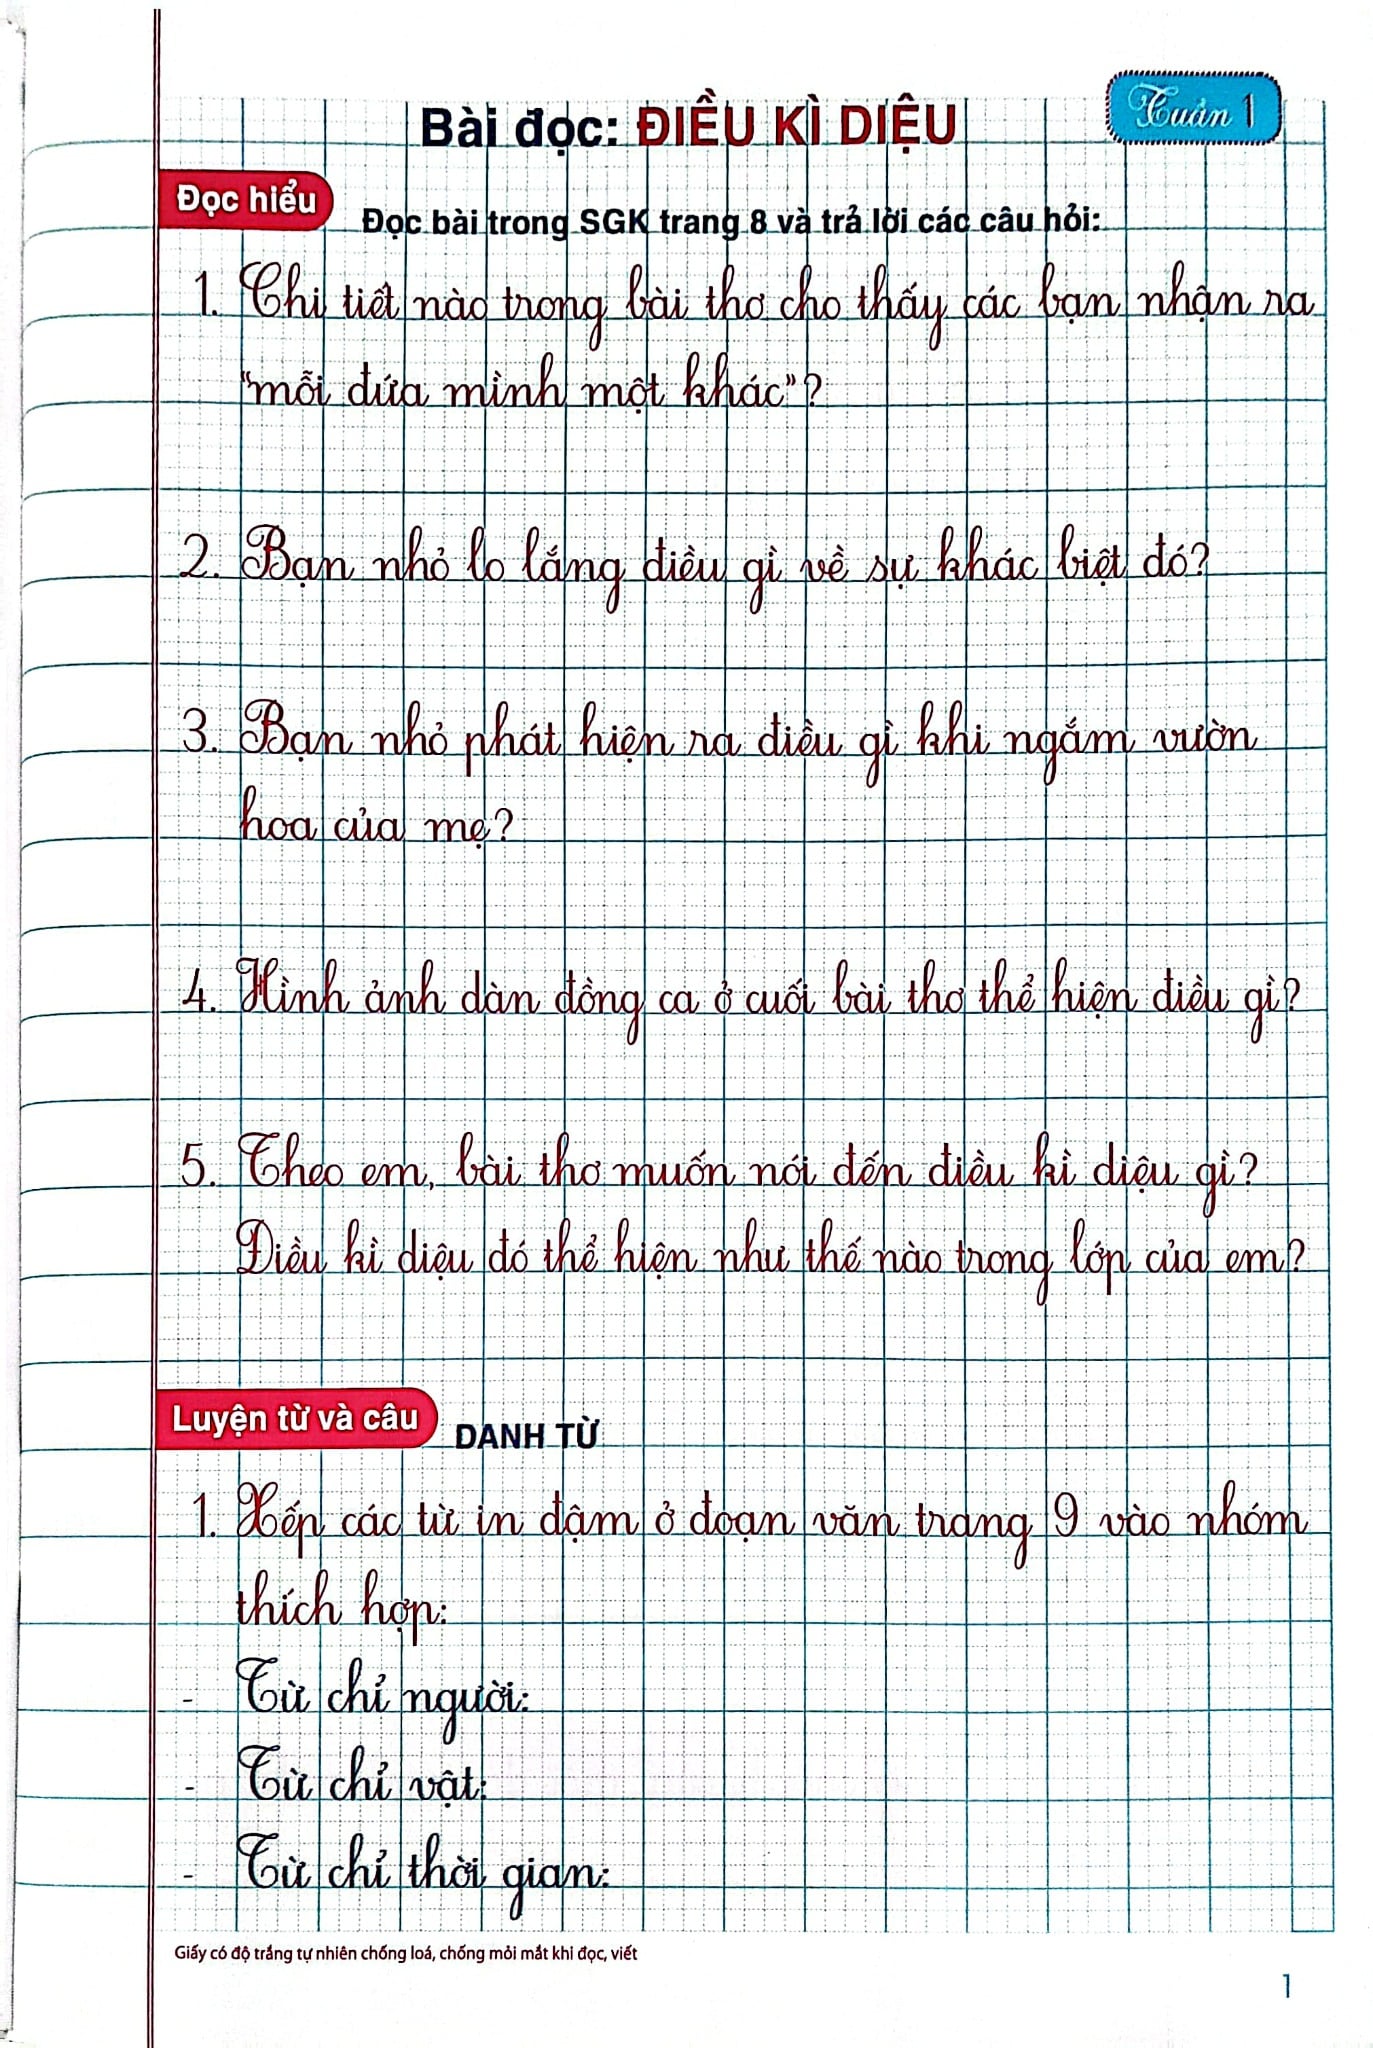 Tuần 1
Bài đọc: ĐIỀU KÌ DIỆU
Đọc hiểu
Đọc bài trong SGK trang 8 và trả lời các câu hỏi:
1. Chi tiết nào trong bài thơ cho thấy các bạn nhận ra
"mỗi đứa mình một khác"?
2. Bạn nhỏ lo lắng điều gì về sự khác biệt đó?
3. Bạn nhỏ phát hiện ra điều gì khi ngắm vườn
hoa của mẹ?
4. Hình ảnh dàn đồng ca ở cuối bài thơ thể hiện điều gì?
5. Theo em, bài thơ muốn nói đến điều kì diệu gì?
Điều kì diệu đó thể hiện như thế nào trong lớp của em?
Luyện từ và câu
DANH TỪ
1. Xếp các từ in đậm ở đoạn văn trang 9 vào nhóm
thích hợp:
- Từ chỉ người:
- Từ chỉ vật:
- Từ chỉ thời gian:
Giấy có độ trắng tự nhiên chống loá, chống mỏi mắt khi đọc, viết
1